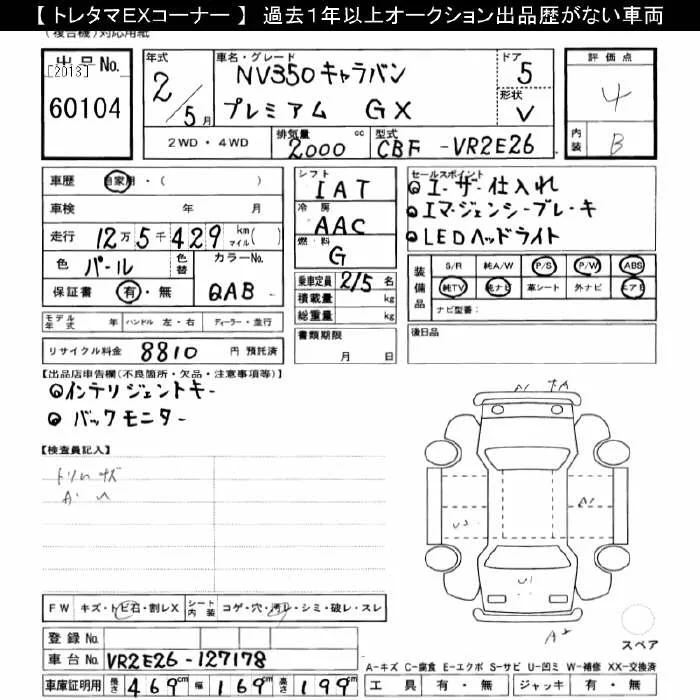 【 トレタマEXコーナー 】 過去１年以上オークション出品歴がない車両
(複合機)対応用紙
出品No.
[2013]
60104
年式
2/5月
車名・グレード
NV350キャラバン
プレミアム GX
ドア
5
形状
V
評価点
4
内装
B
2WD・4WD
排気量
2000 cc
型式
CBF -VR2E26
車歴 自家用・( )
車検 年 月
走行 12万5千429 km マイル( )
色 パール 色替 カラーNo.
保証書 有・無 QAB
モデル年式 年 ハンドル 左・右 ディーラー・並行
リサイクル料金 8810 円 預託済
シフト
IAT
冷房
AAC
燃料
G
乗車定員 2/5 名
積載量 kg
総重量 kg
書類期限
月 日
セールスポイント
◎エーザー仕入れ
◎エマージェンシーブレーキ
◎LEDヘッドライト
装備品
S/R 純A/W P/S P/W ABS
純TV 純ナビ 革シート 外ナビ エアB
ナビ型番:
後日品
【出品店申告欄(不良箇所・欠品・注意事項等)】
◎インテリジェントキー
◎バックモニター
【検査員記入】
FW キズ・トビ石・割レX シート内装 コゲ・穴・汚レ・シミ・破レ・スレ
登録No.
車台No. VR2E26-127178
車庫証明用 長さ 469cm 幅 169cm 高さ 199cm
A1
U1
スペア
A-キズ C-腐食 E-エクボ S-サビ U-凹ミ W-補修 XX-交換済
工具 有・無 ジャッキ 有・無